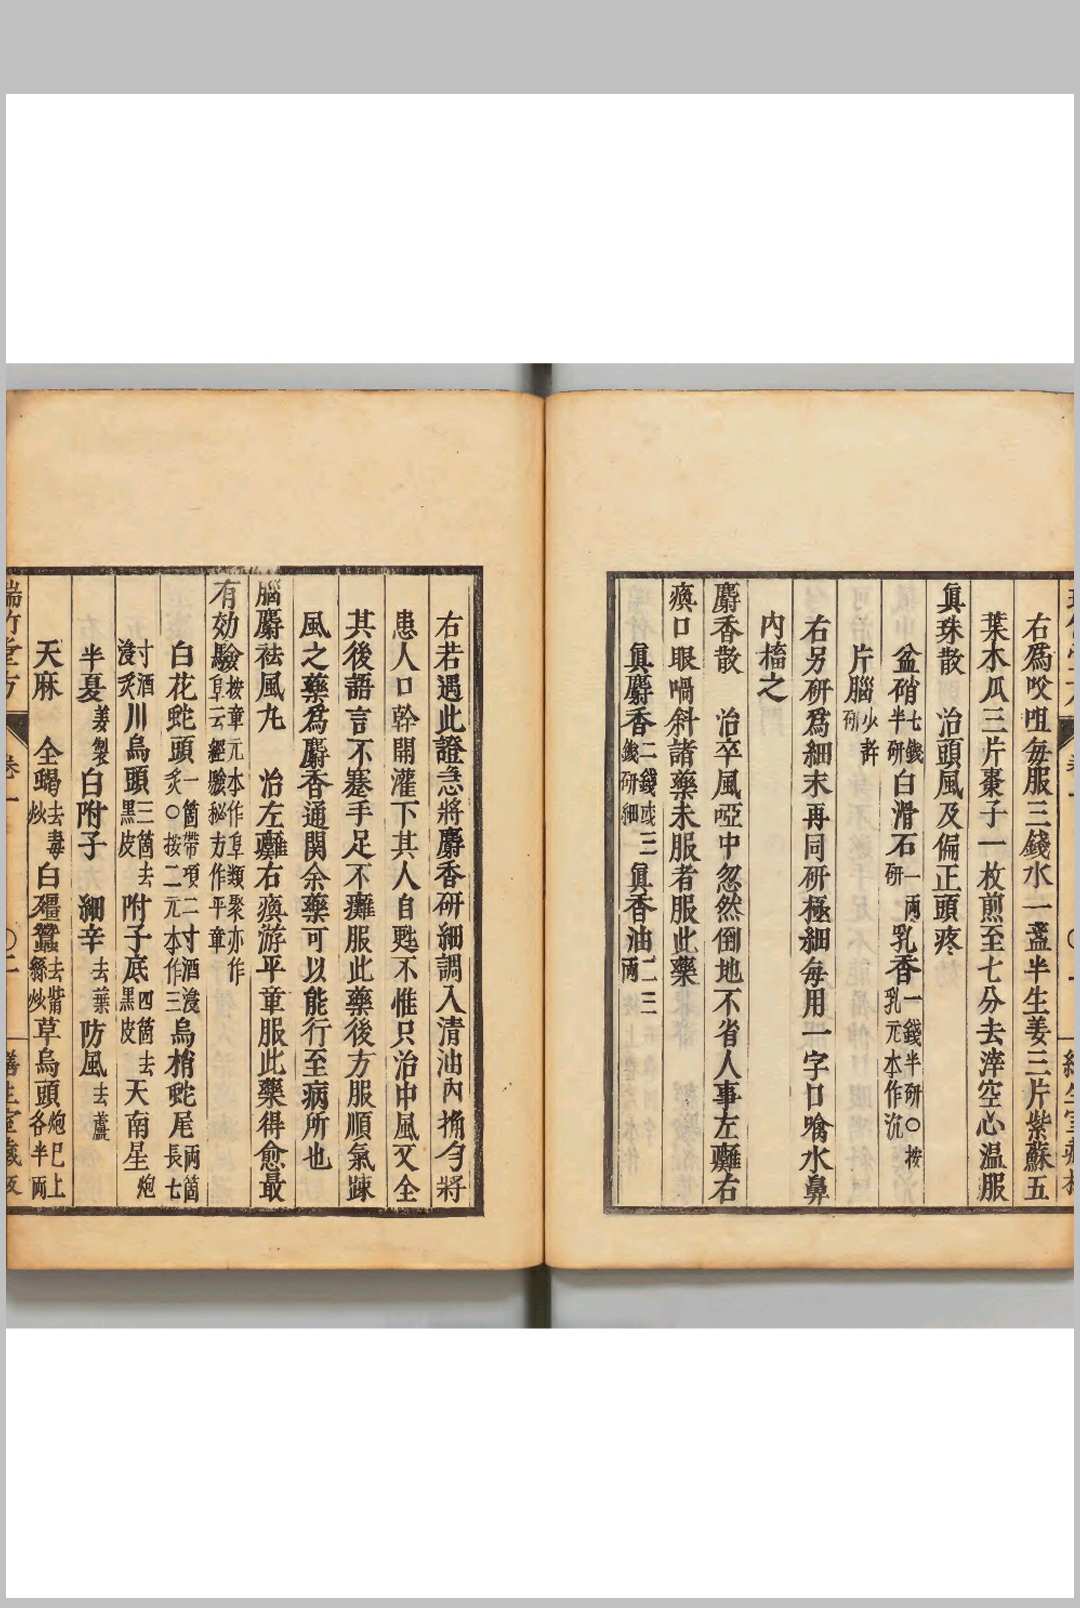 右爲㕮咀每服三錢水一盞半生姜三片紫蘇五
葉木瓜三片棗子一枚煎至七分去滓空心温服
眞珠散　治頭風及偏正頭疼
盆硝七錢半研白滑石一兩研乳香一錢半研○按乳元本作沉
片腦少許研
右另研爲細末再同研極細每用一字口噙水鼻
內搐之
麝香散　治卒風啞中忽然倒地不省人事左癱右
瘓口眼喎斜諸藥未服者服此藥
眞麝香二錢或三錢研細　眞香油二三兩
右若遇此證急將麝香研細調入清油內攪勻將
患人口幹開灌下其人自甦不惟只治中風又全
其後語言不蹇手足不癱服此藥後方服順氣踈
風之藥爲麝香通関余藥可以能行至病所也
腦麝祛風丸　治左癱右瘓游平章服此藥得愈最
有効驗按章元本作阜類聚亦作阜云經驗秘方作平章
白花蛇頭一箇帶項二寸酒浸炙○按二元本作三烏梢蛇尾兩箇長七
寸酒浸炙川烏頭三箇去黑皮附子底四箇去黑皮天南星炮
半夏姜製白附子　細辛去葉防風去蘆
天麻　全蝎去毒炒白殭蠶去觜絲炒草烏頭炮已上各半兩
瑞竹堂方　卷一　○二